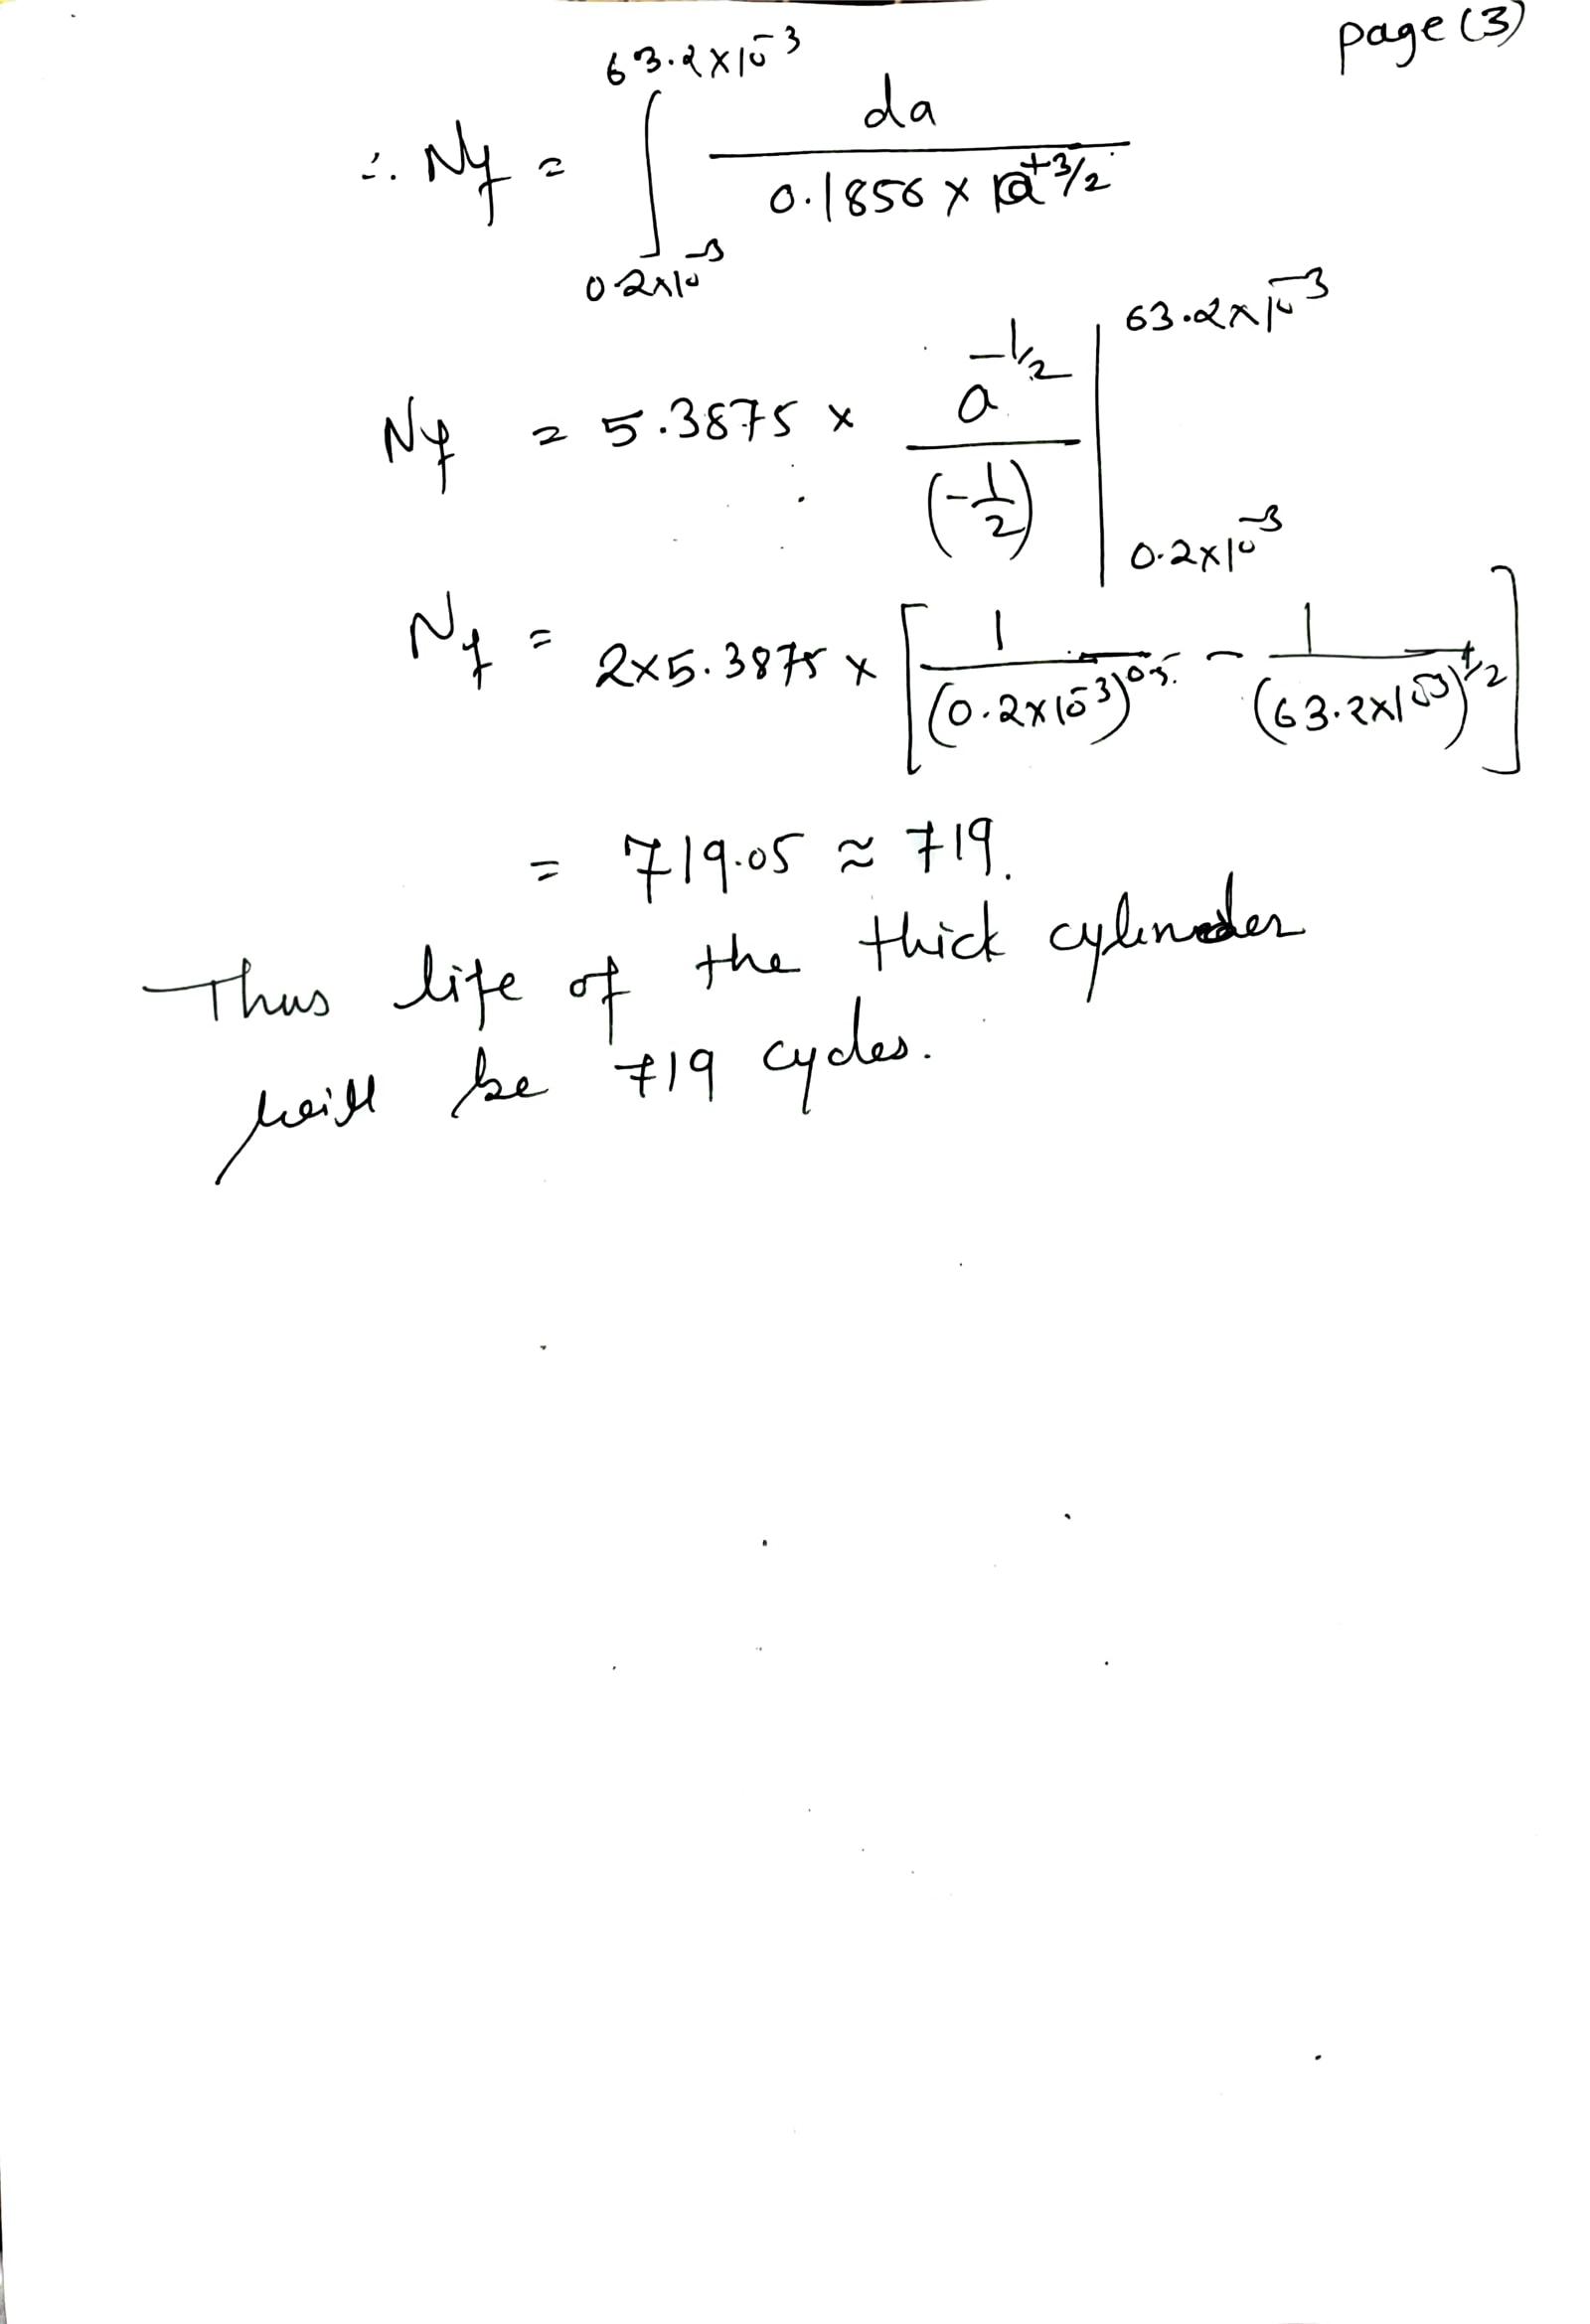 page (3)
∴ Nf = ∫_{0.2×10^-3}^{63.2×10^-3} da / (0.1856 × a^{+3/2})
Nf = 5.3875 × a^{-1/2} / (-1/2) |_{0.2×10^-3}^{63.2×10^-3}
Nf = 2×5.3875 × [ 1/(0.2×10^-3)^{0.5} - 1/(63.2×10^-3)^{1/2} ]
= 719.05 ≈ 719.
Thus life of the thick cylinder
will be 719 cycles.